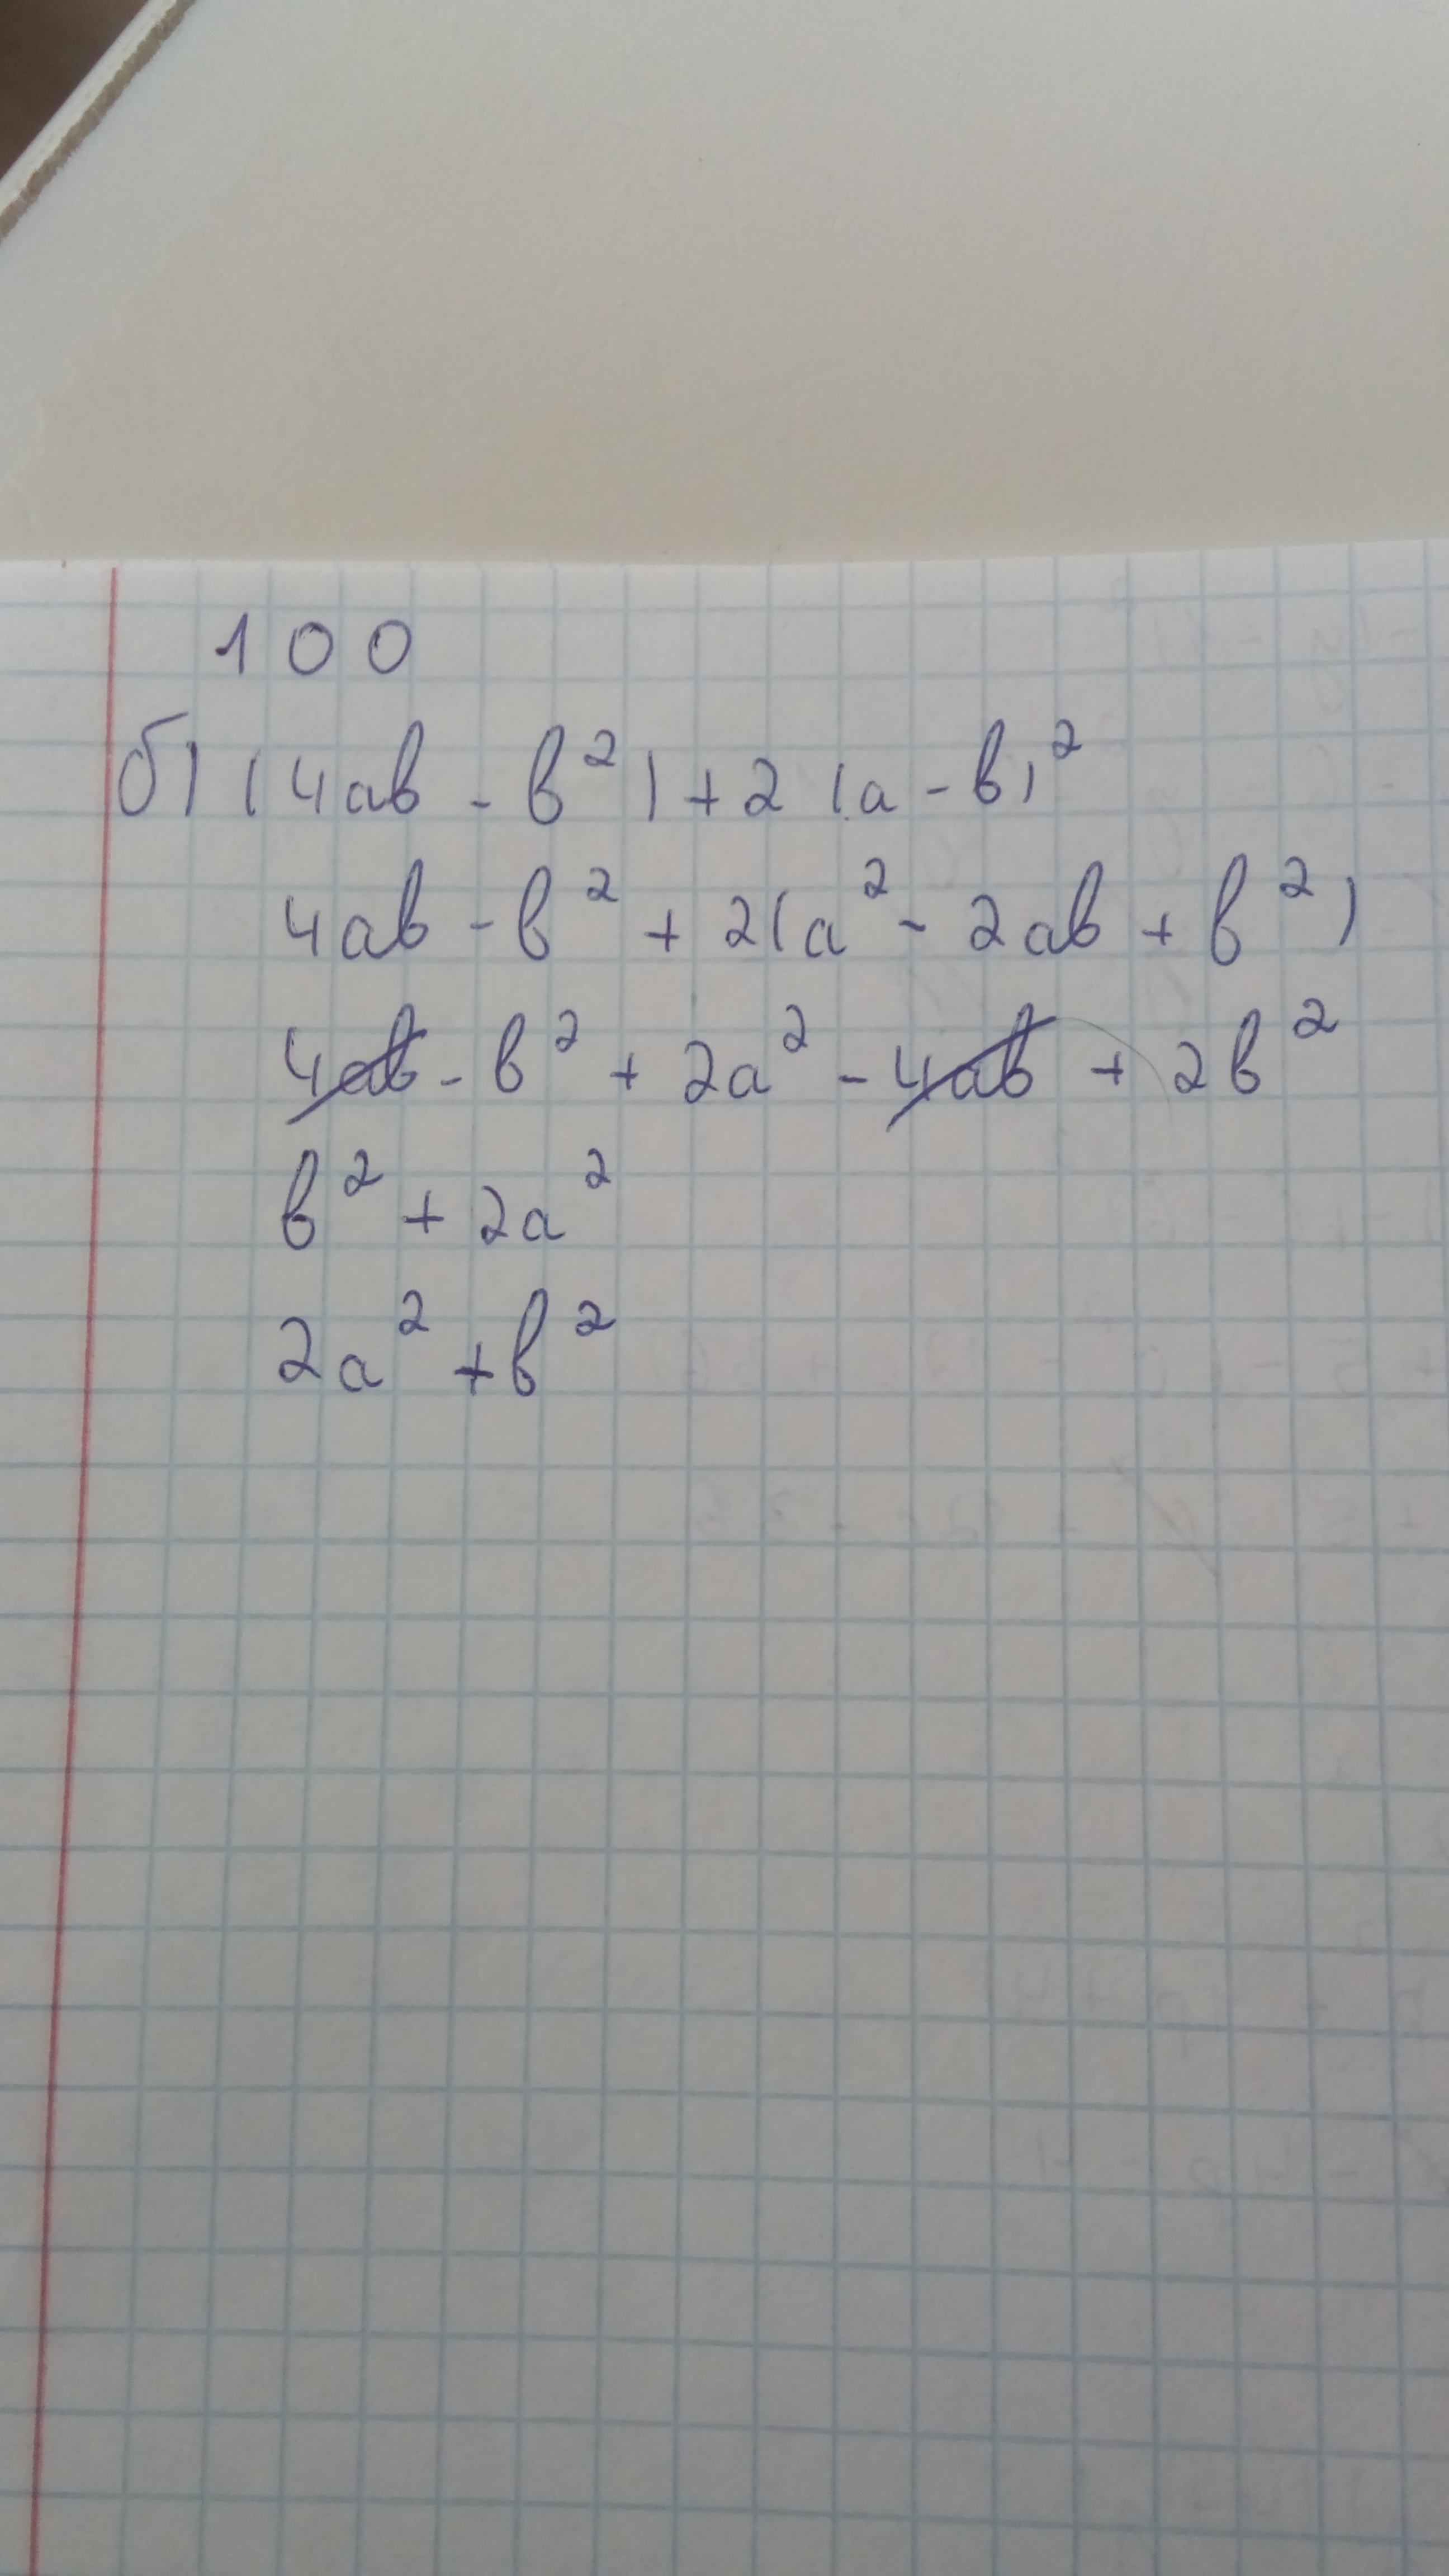 100
б) (4ab - b²) + 2(a - b)²
4ab - b² + 2(a² - 2ab + b²)
4ab - b² + 2a² - 4ab + 2b²
b² + 2a²
2a² + b²